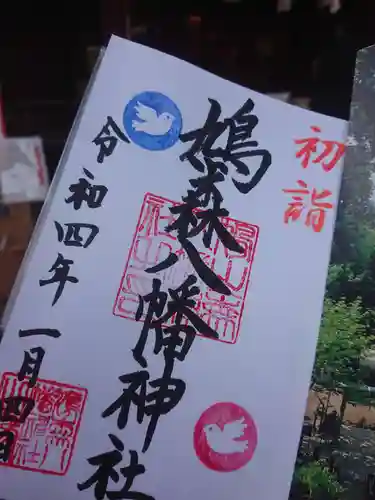 初詣
鳩森八幡神社
令和四年一月四日